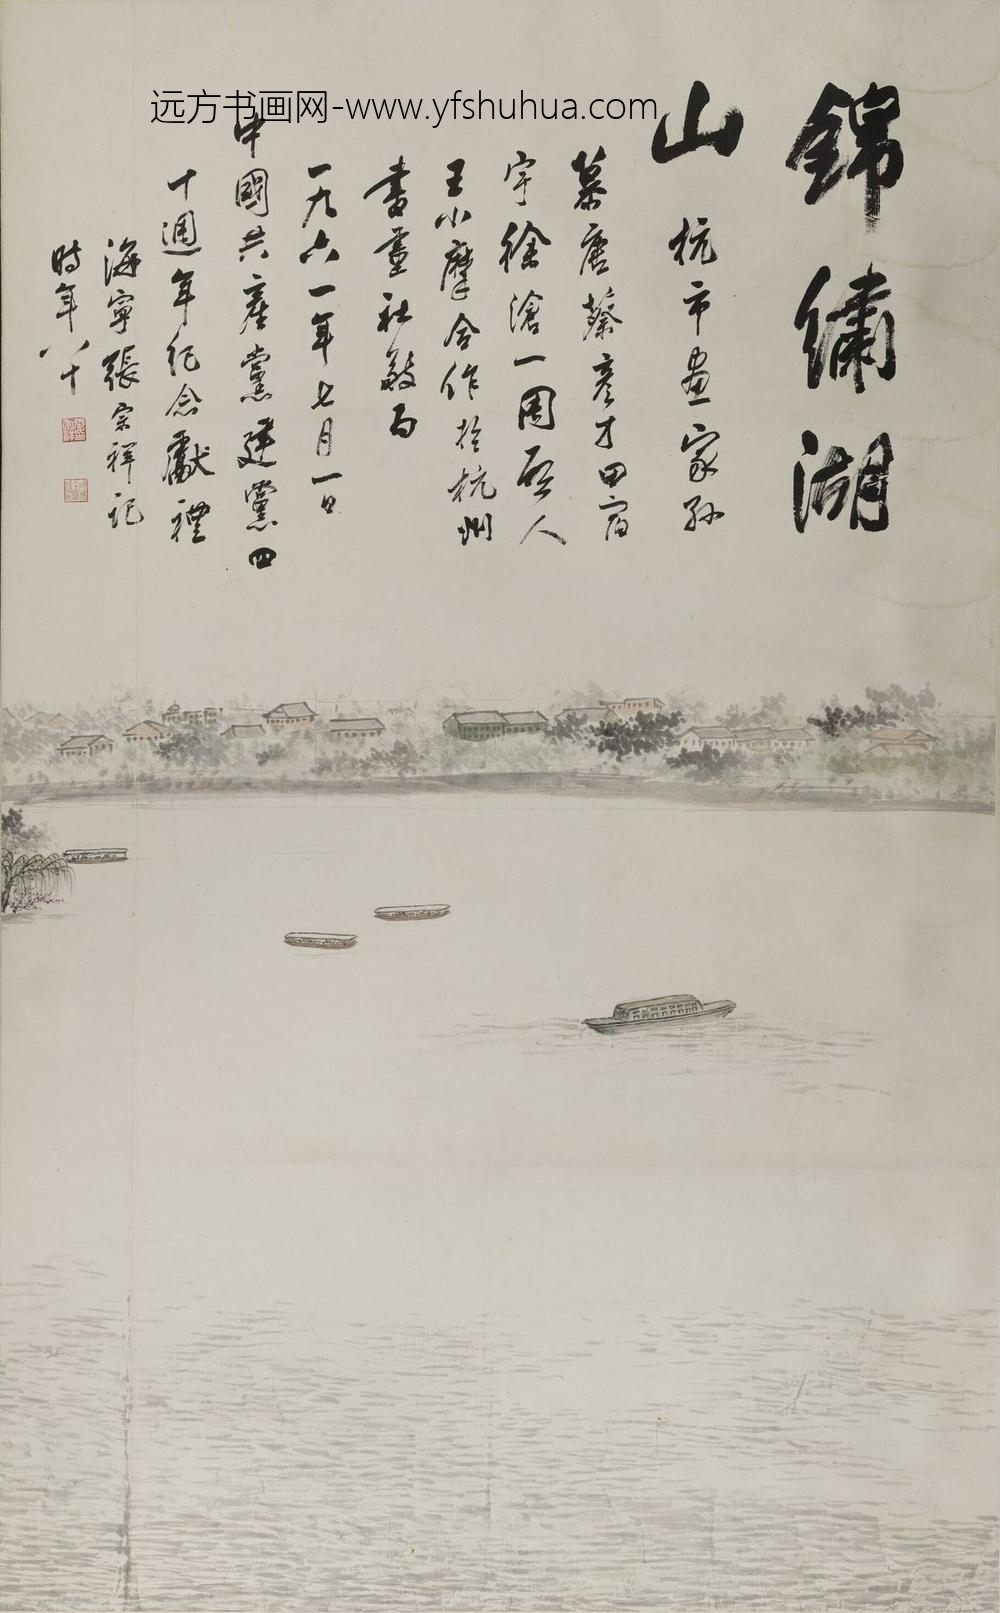 远方书画网-www.yfshuhua.com
錦繡湖
山
杭市畫家孫
慕唐蔡彥才田宿
宇徐滄一周
人
王小摩合作於杭州
書畫社
一九六一年七月一日
中國共產黨建黨四
十週年紀念獻禮
海寧張宗祥記
時年八十